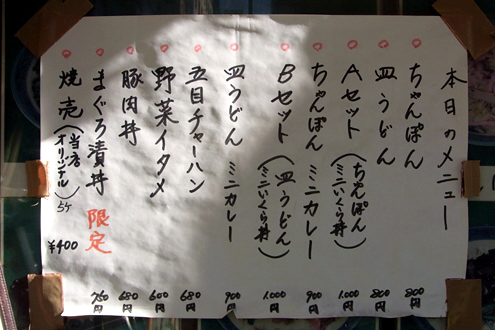 本日のメニュー
ちゃんぽん 800円
皿うどん 800円
Aセット(ちゃんぽん ミニいくら丼) 1.000円
ちゃんぽん ミニカレー 900円
Bセット(皿うどん ミニいくら丼) 1.000円
皿うどん ミニカレー 900円
五目チャーハン 680円
野菜イタメ 600円
豚肉丼 680円
まぐろ漬丼 限定 750円
焼売(当店オリジナル)5ケ ¥400